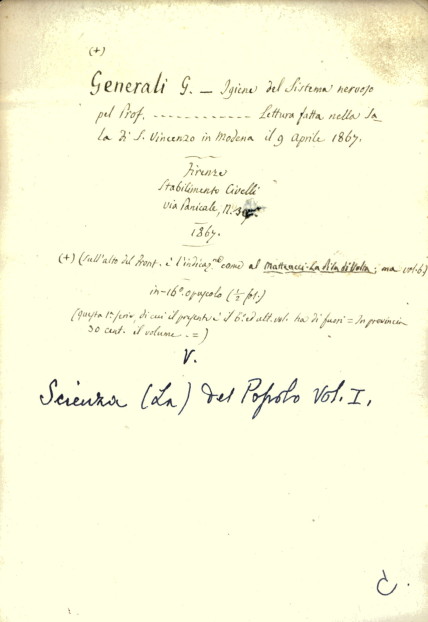 (+)
Generali G. — Igiene del Sistema nervoso
pel Prof. ------------ Lettura fatta nella Sa
la di S. Vincenzo in Modena il 9 Aprile 1867.
Firenze
Stabilimento Civelli
via Panicale, N.
1867.
(+) (Sull'alto del front. è l'indicaz.ne come al Matteucci-La Pila di Volta; ma vol. 6)
in-16° opuscolo (1/2 fol.)
(Questa 1a serie, di cui il presente è il 6° ed alt. vol. ha di fuori = In provincia
30 cent. il volume -=)
V.
Scienza (La) del Popolo Vol. I.
C.